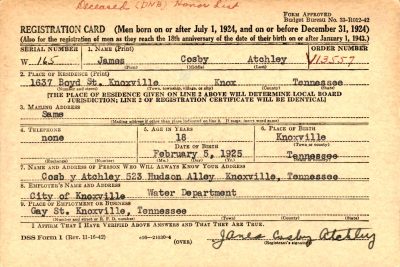 Deceased (DNB) Honor List
FORM APPROVED
Budget Bureau No. 33-R012-42
REGISTRATION CARD (Men born on or after July 1, 1924, and on or before December 31, 1924)
(Also for the registration of men as they reach the 18th anniversary of the date of their birth on or after January 1, 1943.)
SERIAL NUMBER 1. NAME (Print) ORDER NUMBER
W 165 James Cosby Atchley 13557
(First) (Middle) (Last)
2. PLACE OF RESIDENCE (Print)
1637 Boyd St. Knoxville Knox Tennessee
(Number and street) (Town, township, village, or city) (County) (State)
[THE PLACE OF RESIDENCE GIVEN ON LINE 2 ABOVE WILL DETERMINE LOCAL BOARD
JURISDICTION; LINE 2 OF REGISTRATION CERTIFICATE WILL BE IDENTICAL]
3. MAILING ADDRESS
Same
[Mailing address if other than place indicated on line 2. If same, insert word same]
4. TELEPHONE 5. AGE IN YEARS 6. PLACE OF BIRTH
none 18 Knoxville
DATE OF BIRTH (Town or county)
February 5, 1925 Tennessee
(Exchange) (Number) (Mo.) (Day) (Yr.) (State or country)
7. NAME AND ADDRESS OF PERSON WHO WILL ALWAYS KNOW YOUR ADDRESS
Cosb y Atchley 523 Hudson Alley Knoxville, Tennessee
8. EMPLOYER'S NAME AND ADDRESS
City of Knoxville Water Department
9. PLACE OF EMPLOYMENT OR BUSINESS
Gay St. Knoxville, Tennessee
(Number and street or R. F. D. number) (Town) (County) (State)
I AFFIRM THAT I HAVE VERIFIED ABOVE ANSWERS AND THAT THEY ARE TRUE.
DSS Form 1 (Rev. 11-16-42) (OVER) James Cosby Atchley
(Registrant's signature)